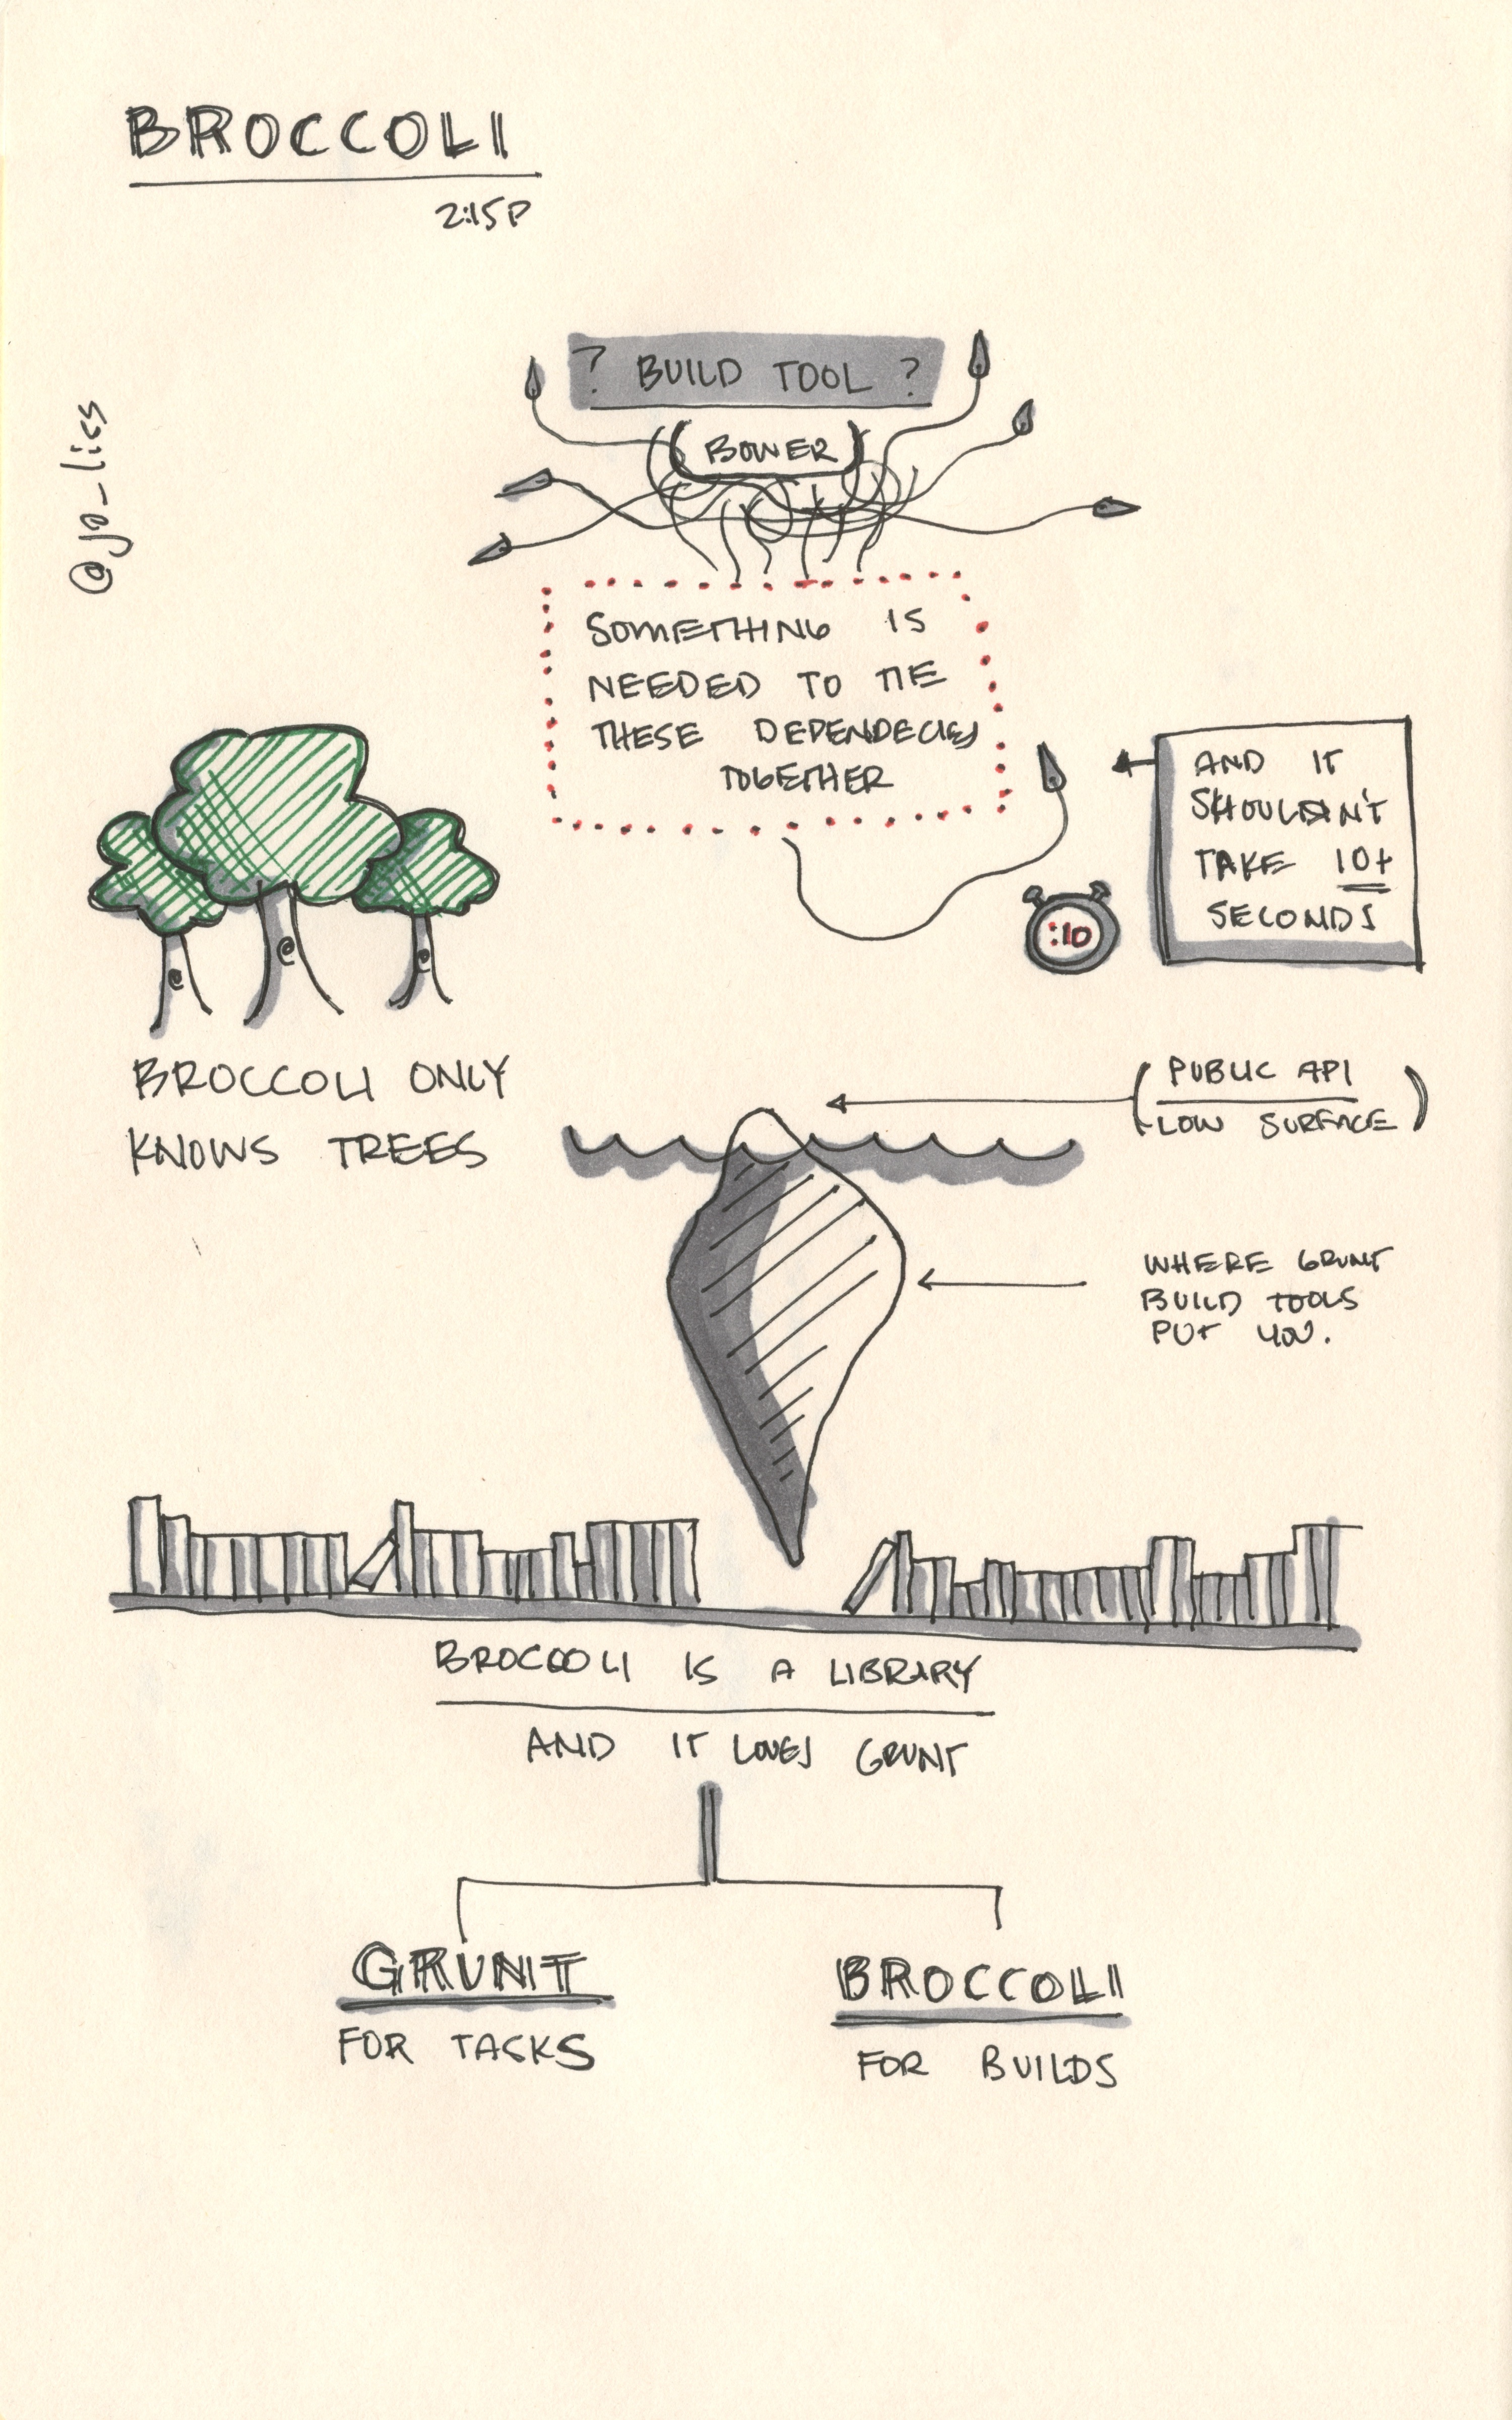 BROCCOLI
2:15P
@jo_lics
? BUILD TOOL ?
(BOWER)
SOMETHING IS
NEEDED TO TIE
THESE DEPENDECIES
TOGETHER
AND IT
SHOULDN'T
TAKE 10+
SECONDS
:10
BROCCOLI ONLY
KNOWS TREES
(PUBLIC API
LOW SURFACE)
WHERE GRUNT
BUILD TOOLS
PUT YOU.
BROCCOLI IS A LIBRARY
AND IT LOVES GRUNT
GRUNT
FOR TASKS
BROCCOLI
FOR BUILDS